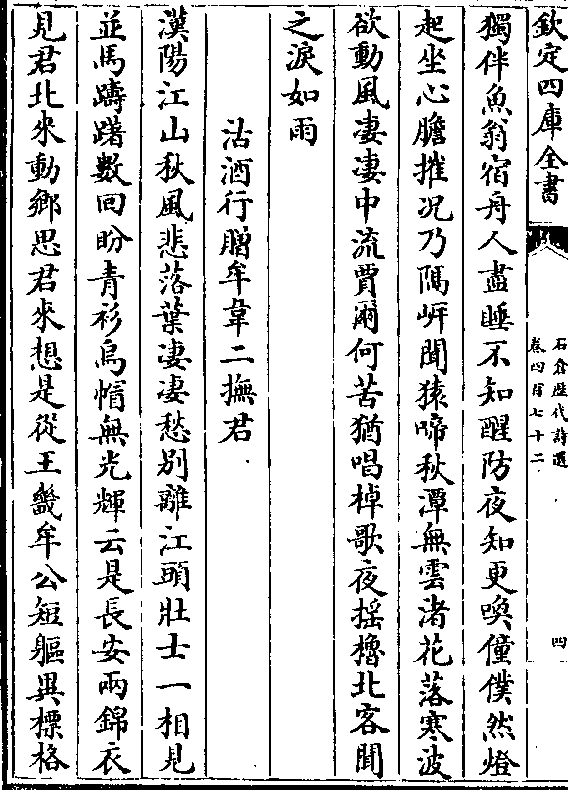 欽定四庫全書
石倉歷代詩選
卷四百七十二
四
獨伴魚翁宿舟人盡睡不知醒防夜知更喚僮僕然燈
起坐心膽摧况乃隔岍聞猿啼秋潭無雲渚花落寒波
欲動風淒淒中流賈爾何苦猶唱棹歌夜揺櫓北客聞
之淚如雨
沽酒行贈牟韋二撫君
漢陽江山秋風悲落葉淒淒愁别離江頭壯士一相見
並馬躊躇數回盼青衫烏幘無光輝云是長安兩錦衣
見君北來動鄉思君來想是從王畿牟公短軀異標格